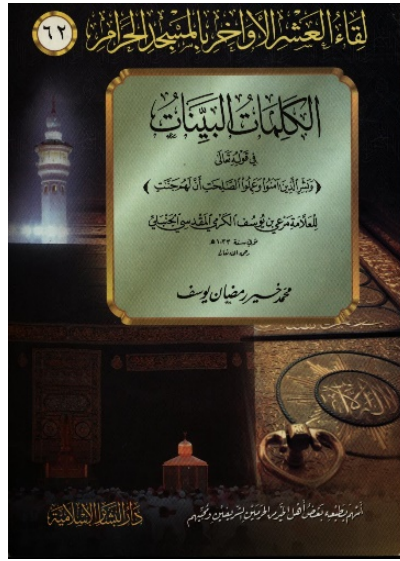 لقاء العشر الأواخر بالمسجد الحرام
٦٢
الكلمات البينات
في قوله تعالى
﴿ وبشر الذين آمنوا وعملوا الصالحات أن لهم جنت ﴾
للعلامة مرعي بن يوسف الكرمي المقدسي الحنبلي
توفي سنة ١٠٣٣هـ
رحمه الله تعالى
محمد خير رمضان يوسف
أسهم بطبعه بعض أهل الخير من الحرمين الشريفين ومحبيهم
دار البشائر الإسلامية